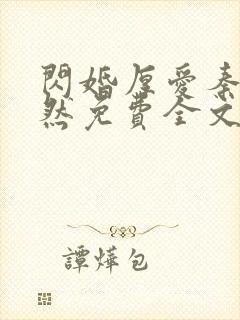 閃婚厚愛秦
然免費全文
譚燁包